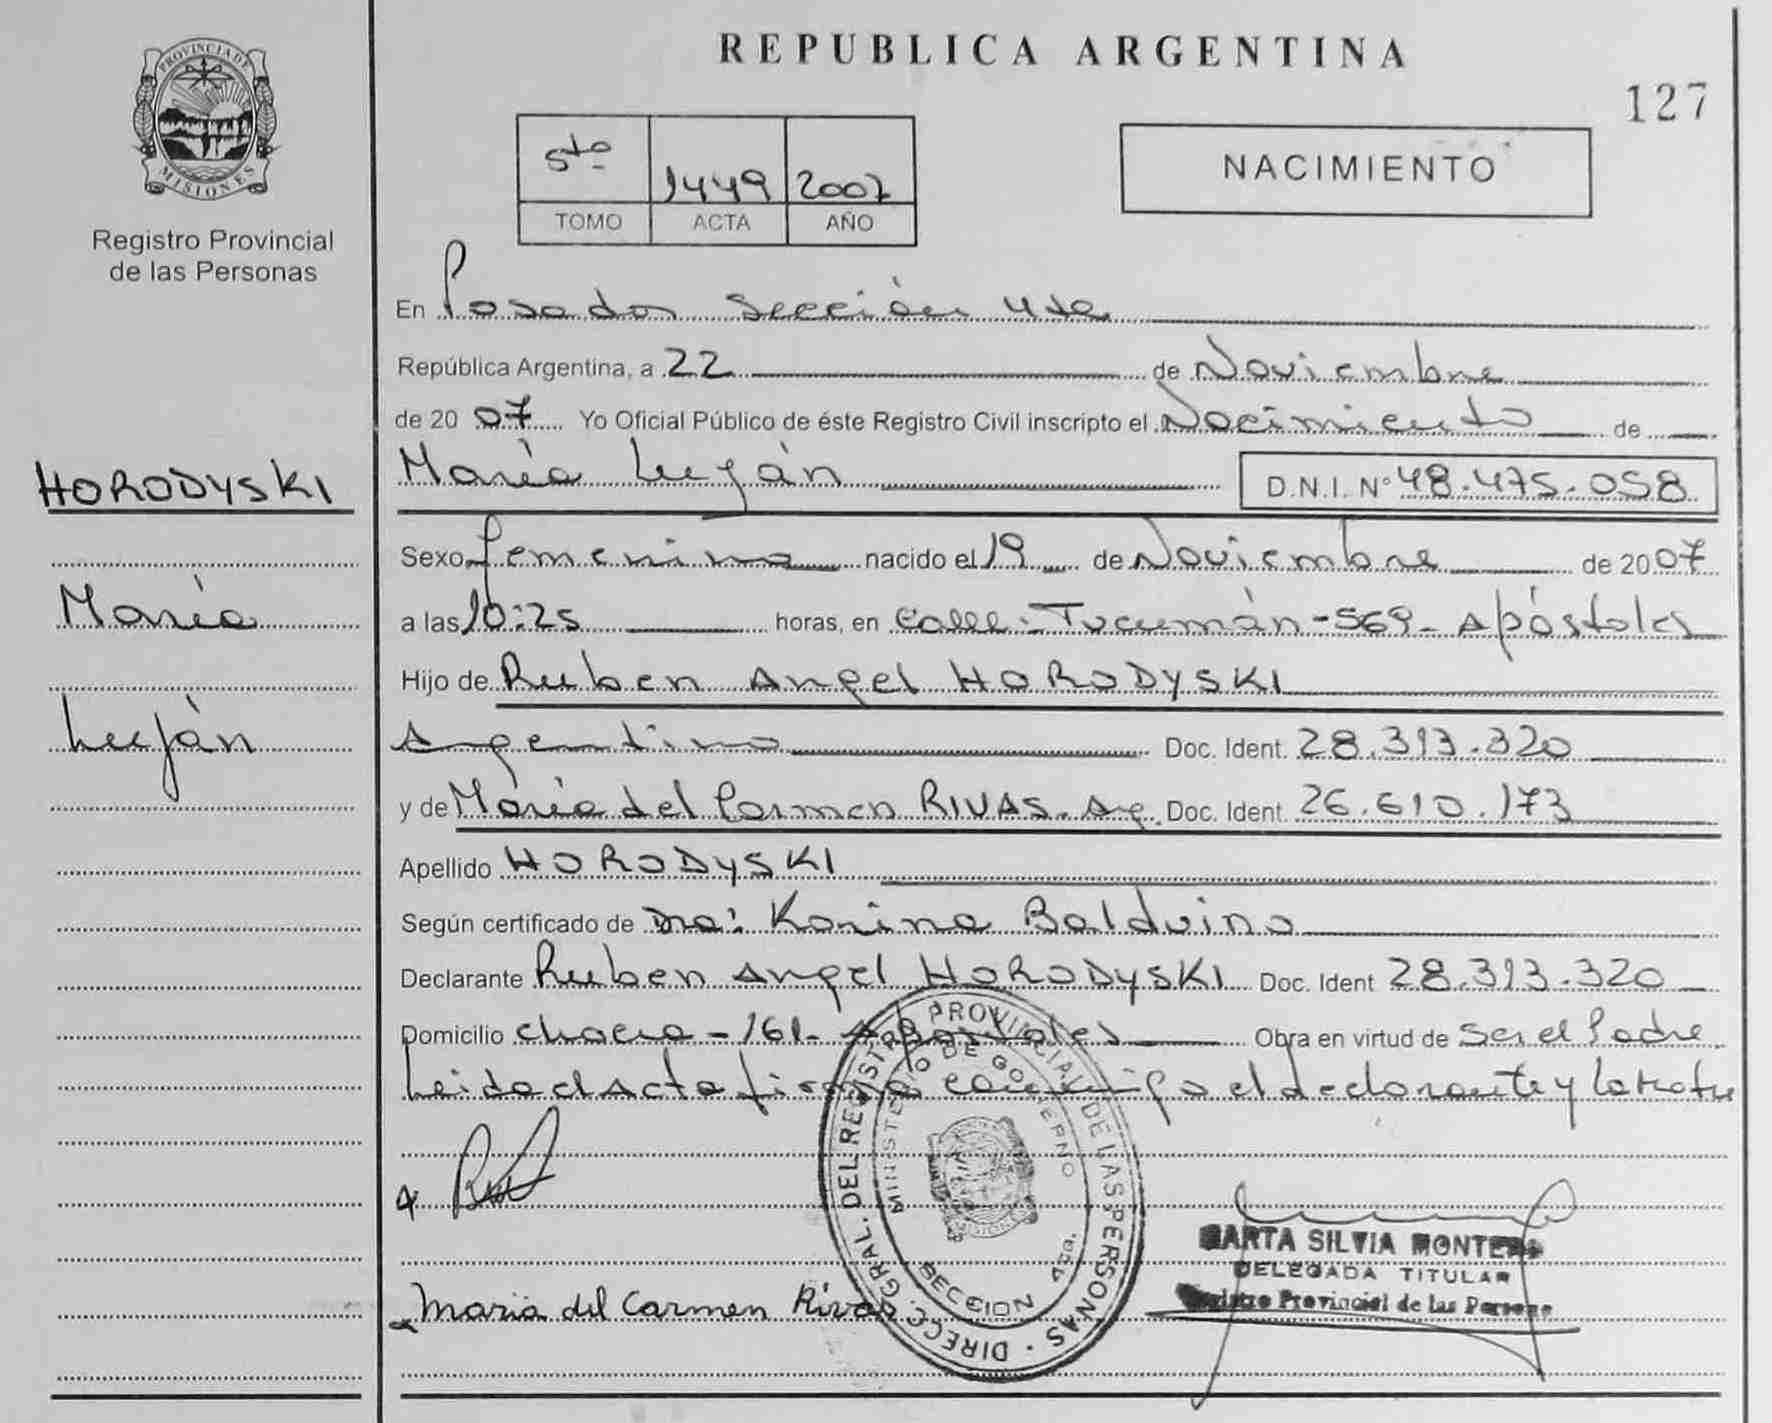 PROVINCIA DE
MISIONES
Registro Provincial
de las Personas
HORODYSKI
María
Luján
REPUBLICA ARGENTINA
127
5to 1449 2007
TOMO ACTA AÑO
NACIMIENTO
En Posadas Sección 4ta
República Argentina, a 22 de Noviembre
de 20 07 Yo Oficial Público de éste Registro Civil inscripto el Nacimiento de
María Luján D.N.I. N° 48.475.058
Sexo femenino nacido el 19 de Noviembre de 20 07
a las 10:25 horas, en Calle: Tucumán-569- Apóstoles
Hijo de Ruben Angel HORODYSKI
Argentino Doc. Ident. 28.313.320
y de María del Carmen RIVAS. Ag. Doc. Ident. 26.610.173
Apellido HORODYSKI
Según certificado de Dra: Karina Balduino
Declarante Ruben Angel HORODYSKI Doc. Ident 28.313.320
Domicilio chacra-161- Apóstoles Obra en virtud de Ser el Padre
Leida el Acta firma conmigo el declarante y la Madre
DIRECC. GRAL. DEL REGISTRO PROVINCIAL DE LAS PERSONAS
MINISTERIO DE GOBIERNO
SECCION 4ta.
MARTA SILVIA MONTERO
DELEGADA TITULAR
Registro Provincial de las Persona
Maria del Carmen Rivas